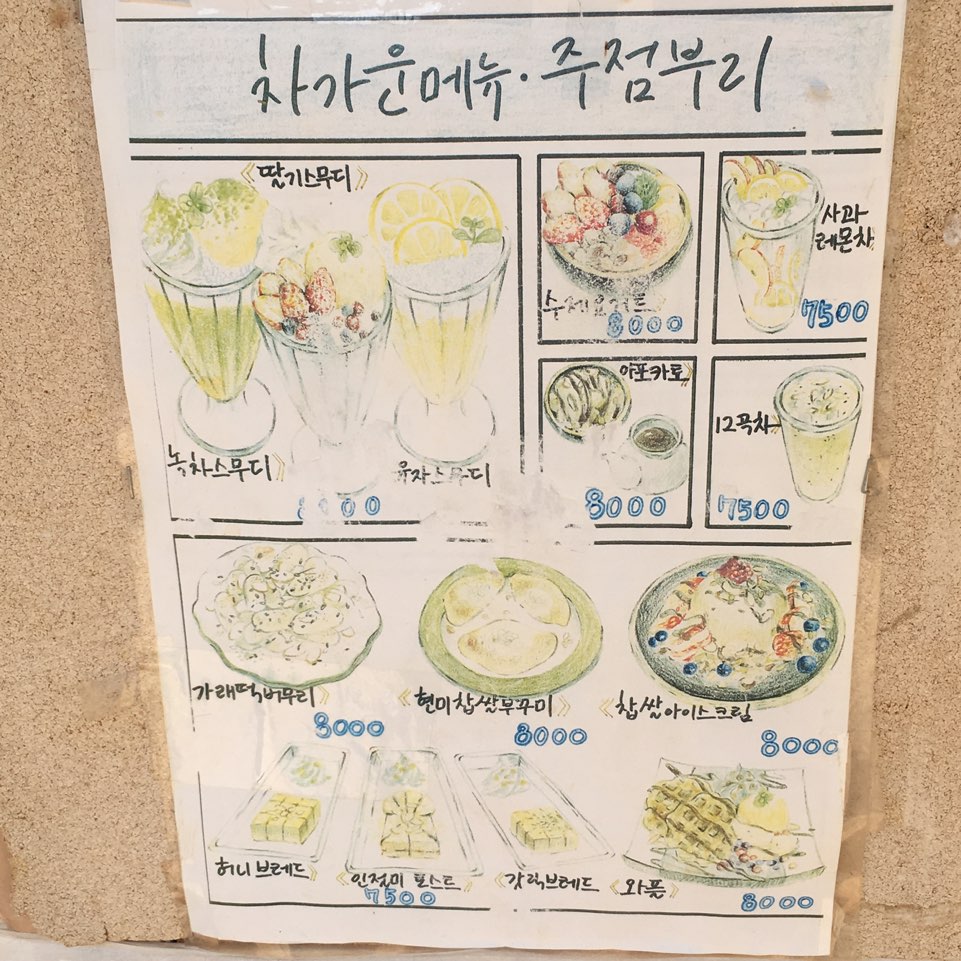 차가운메뉴·주점부리
《딸기스무디》
녹차스무디》
유자스무디
수제요거트》
8000
사과
레몬차
7500
아포카토》
8000
12곡차》
7500
가래떡버무리》
8000
《현미찹쌀부꾸미》
8000
《찹쌀아이스크림
8000
허니브레드》
《인절미 토스트》
7500
《갈릭브레드
《와플》
8000